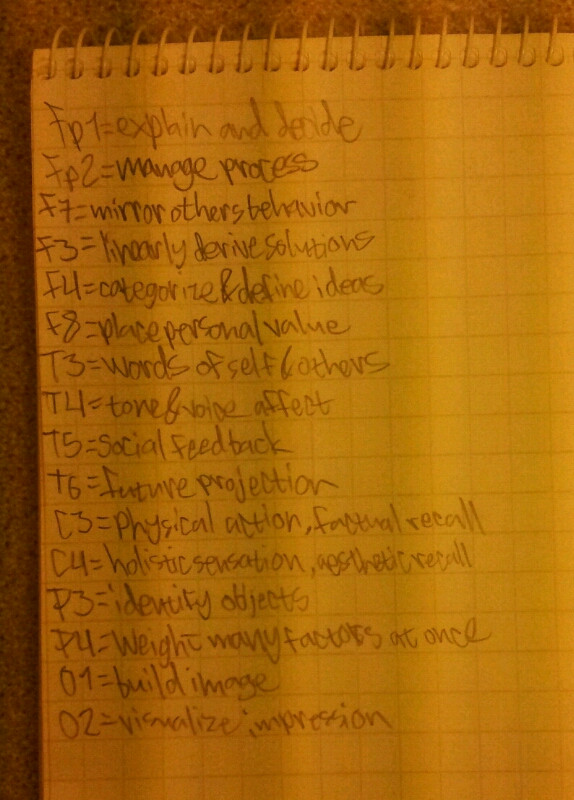 Fp1=explain and decide
Fp2=manage process
F7=mirror others behavior
F3=linearly derive solutions
F4=categorize & define ideas
F8=place personal value
T3=words of self & others
T4=tone & voice affect
T5=social feedback
T6=future projection
C3=physical action, factual recall
C4=holistic sensation, aesthetic recall
P3=identify objects
P4=Weight many factors at once
O1=build image
O2=visualize impression